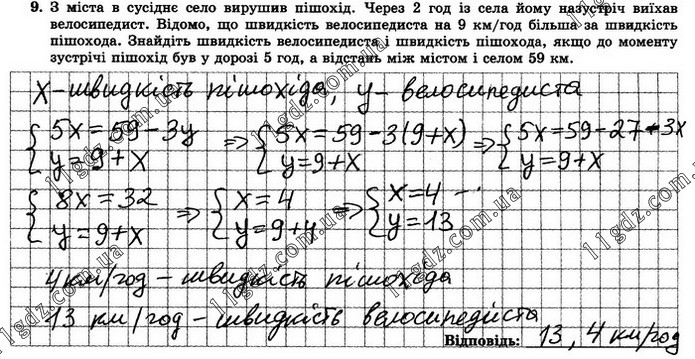 9. З міста в сусіднє село вирушив пішохід. Через 2 год із села йому назустріч виїхав
велосипедист. Відомо, що швидкість велосипедиста на 9 км/год більша за швидкість
пішохода. Знайдіть швидкість велосипедиста і швидкість пішохода, якщо до моменту
зустрічі пішохід був у дорозі 5 год, а відстань між містом і селом 59 км.
X – швидкість пішохіда, y – велосипедиста
{5x = 59 – 3y => {5x = 59 – 3(9+x) => {5x = 59 – 27 – 3x
y = 9 + x y = 9 + x y = 9 + x
{8x = 32 => {x = 4 => {x = 4
y = 9 + x y = 9 + 4 y = 13
4 км/год – швидкість пішохіда
13 км/год – швидкість велосипедиста
Відповідь: 13, 4 км/год
11gdz.com.ua